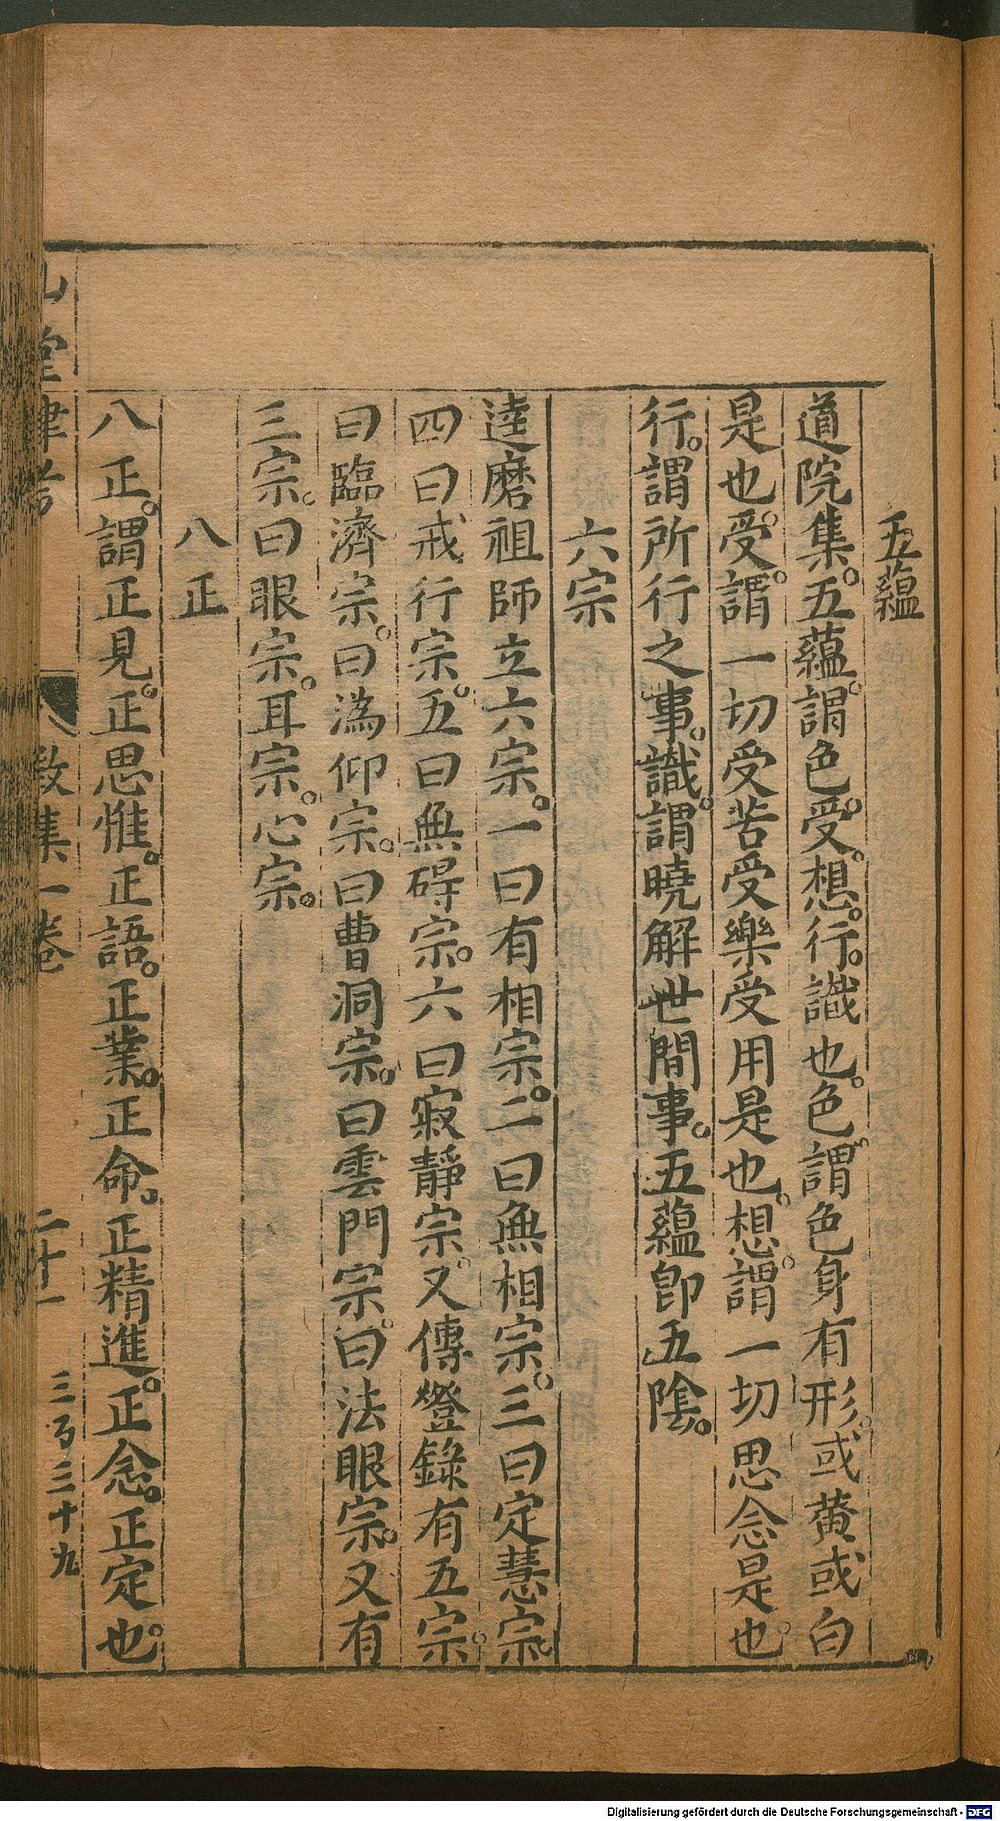 五蘊
道院集。五蘊。謂色。受。想。行。識也。色。謂色身有形。或黄或白
是也。受。謂一切受苦受樂受用是也。想。謂一切思念是也。
行。謂所行之事。識。謂曉解世間事。五蘊即五陰。
六宗
逹磨祖師立六宗。一曰有相宗。二曰無相宗。三曰定慧宗。
四曰戒行宗。五曰無碍宗。六曰寂靜宗。又傳燈錄有五宗。
曰臨濟宗。曰溈仰宗。曰曹洞宗。曰雲門宗。曰法眼宗。又有
三宗。曰眼宗。耳宗。心宗。
八正
八正。謂正見。正思惟。正語。正業。正命。正精進。正念。正定也。
山堂肆考 徵集一卷 二十一 三百三十九
Digitalisierung gefördert durch die Deutsche Forschungsgemeinschaft - DFG